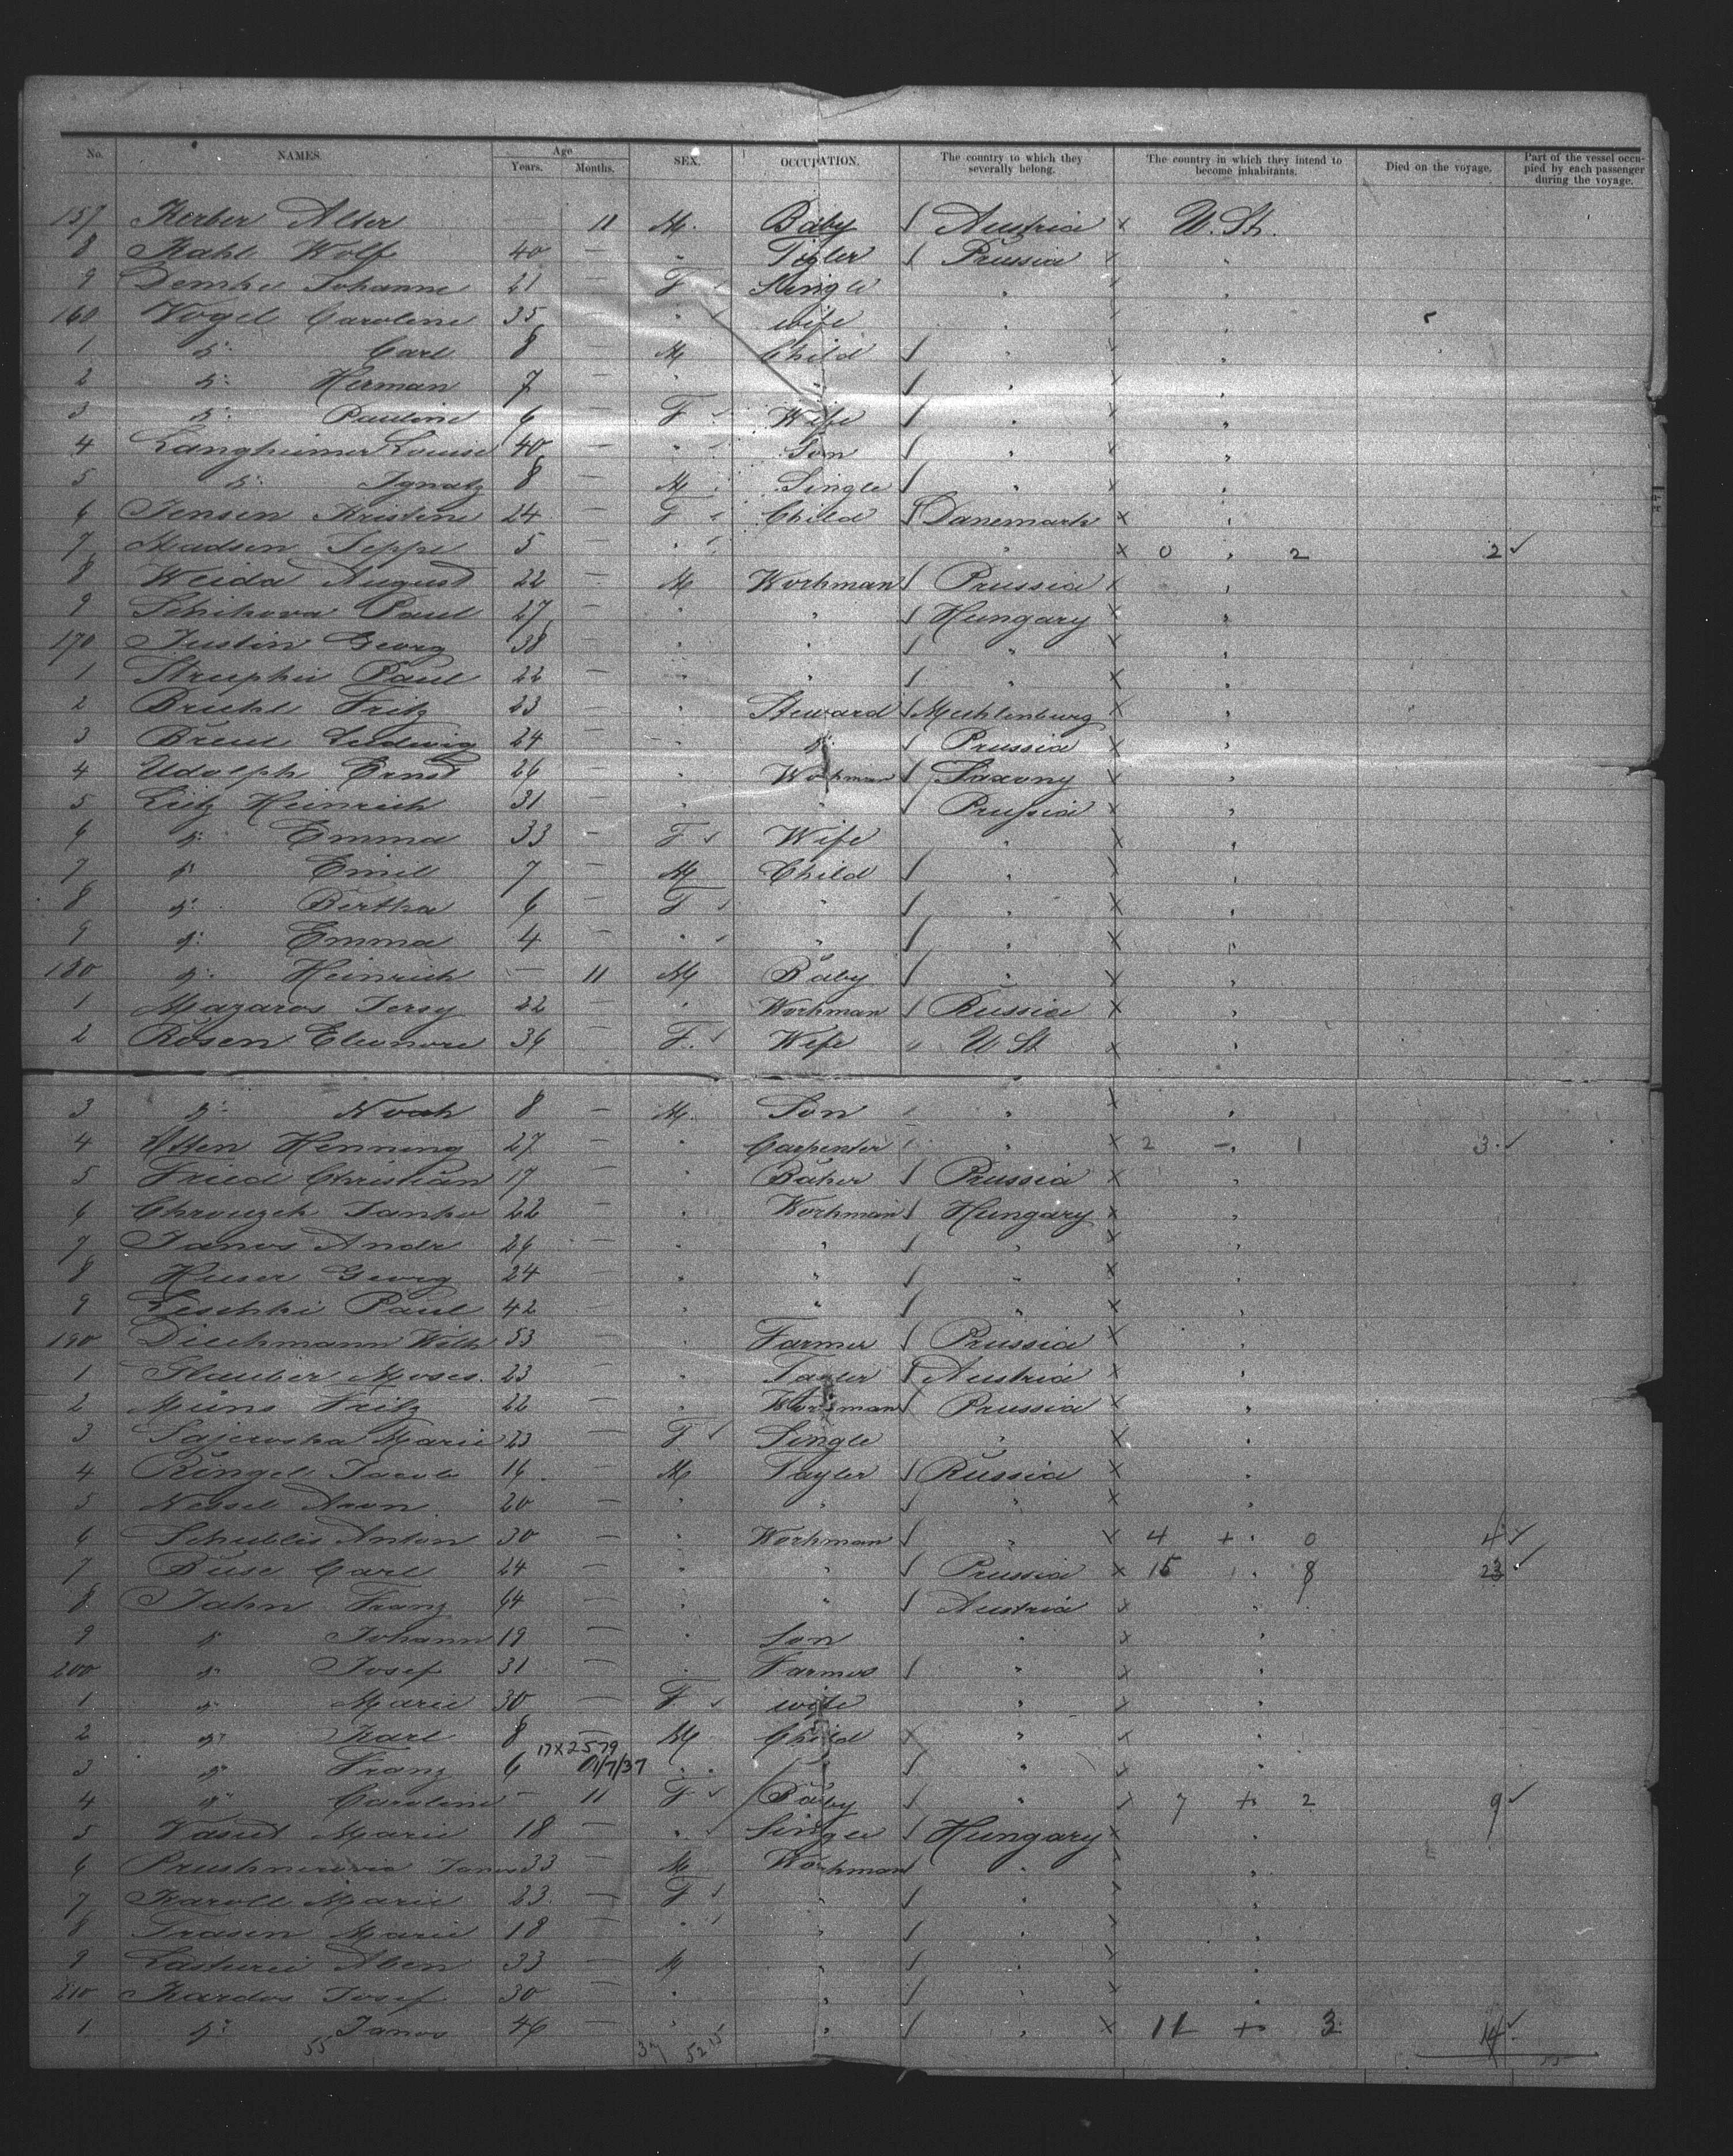 No. NAMES. Age Years. Months. SEX. OCCUPATION. The country to which they severally belong. The country in which they intend to become inhabitants. Died on the voyage. Part of the vessel occupied by each passenger during the voyage.
157 Kerber Alter — 11 M. Baby Austria U. St.
8 Kahl Wolf 40 — " Prussia "
9 Demke Johanne 21 — F Single " "
160 Vogel Caroline 35 — " wife " "
1 do Carl 8 — M Child " "
2 do Herman 7 — " " " "
3 do Pauline 6 — F Wife " "
4 Langheimer Louise 40 — " Son " "
5 do Ignatz 8 — M Single " "
6 Jensen Kristine 24 — F Child Danemark "
7 Madsen Seppe 5 — " " 0 " 2 2
8 Weida August 22 — M Workman Prussia "
9 Schikova Paul 27 — " " Hungary "
170 Justin Georg 38 — " " " "
1 Paul 22 — " " " "
2 Bruhl Fritz 23 — " Steward Meklenburg "
3 Breul Ludwig 24 — " do Prussia "
4 Udolph Ernst 26 — " Workman Saxony "
5 Litz Heinrich 31 — " " Prussia "
6 do Emma 33 — F Wife " "
7 do Emil 7 — M Child " "
8 do Bertha 6 — F " " "
9 do Emma 4 — " " " "
180 do Heinrich — 11 M Baby " "
1 Mazaros Jersy 22 — " Workman Russia "
2 Rosen Eleonore 36 — F. Wife U St "
3 do Noah 8 — M. Son " "
4 Otten Henning 27 — " Carpenter " 2 - " 1 3
5 Fried Christian 17 — " Baker Prussia "
6 Janko 22 — " Workman Hungary "
7 Janos Andr 26 — " " " "
8 Huser Georg 24 — " " " "
9 Leschki Paul 42 — " " " "
190 Diekmann Wilh 53 — " Farmer Prussia "
1 Stauber Moses. 23 — " Tayler Austria "
2 Müns Fritz 22 — " Workman Prussia "
3 Sajewska Marie 23 — F Single " "
4 Ringel Jacob 16 — M Tayler Russia "
5 Nessel Aron 20 — " " " "
6 Schublis Anton 30 — " Workman " 4 + " 0 4
7 Buse Carl 24 — " " Prussia 15 " 8 23
8 Jahn Franz 64 — " " Austria "
9 do Johann 19 — " Son " "
200 do Josef 31 — " Farmer " "
1 do Marie 30 — F. wife " "
2 do Karl 8 — M. Child " "
17X2579
3 do Franz 6 1/7/37 " " " "
4 do Caroline — 11 F Baby " 7 + 2 9
5 Vasut Marie 18 — " Single Hungary "
6 Janos 33 — M Workman " "
7 Karoll Marie 23 — F " " "
8 Trasen Marie 18 — " " " "
9 33 — M " " "
210 Kardos Josef 30 — " " " "
1 do Janos 46 — " " " 11 + 3 14
55 37 52 15 55